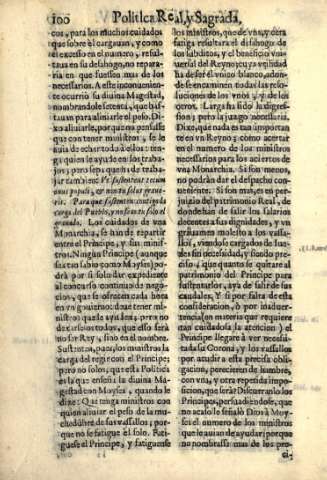 100 Politica Real, y Sagrada,
cos, para los muchos cuidados
que sobre el cargauan, y como
el excesso en el numero, resul-
taua en su desahogo, no repara-
ria en que fuessen mas de los
necessarios. A este inconuenien-
te ocurrió su diuina Magestad,
nombrandole setenta, que bas-
tauan para aliuiarle el peso. Di-
xo aliuiarle, por quien pensasse
que con tener ministros, se le
auia de echar todo a ellos: ten-
ga quien le ayude en los traba-
jos; pero sepa que ha de traba-
jar tambien: Vt sustentent tecum
onus populi, & non tu solus graue-
ris. Para que sustenten contigo la
carga del Pueblo, y no seas tu solo el
grauado. Los cuidados de vna
Monarchia, se han de repartir
entre el Principe, y sus minis-
tros. Ningun Principe (aunque
sea tan sabio como Moyses) po-
drá por si solo dar expediente
al concurso continuado de nego-
cios, que se ofrecen cada hora
en vn gouierno: deue tener mi-
nistros que le ayuden, pero no
dexarselos todos, que esso será
no ser Rey, sino en el nombre.
Sustenten, pues, los ministros la
carga del regir con el Principe;
pero no solos, que esta Politica
es la que enseña la diuina Ma-
gestad con Moyses, quando le
dize: Que tenga ministros con
quien aliuiar el peso de la mu-
chedumbre de sus vassallos; por-
que no se fatigue el solo. Fati-
guese el Principe, y fatiguense
los ministros, que de vna, y otra
fatiga resultará el desahogo de
los subditos, y el beneficio vni-
uersal del Reyno; cuya vtilidad
ha de ser el vnico blanco, adon-
de se encaminen todas las reso-
luciones de los vnos, y de los
otros. Larga ha sido la digres-
sion; pero la juzgo necessaria.
Dixe, que nada es tan importan-
te en vn Reyno; como acertar
en el numero de los ministros
necessarios para los aciertos de
vna Monarchia. Si son menos,
no podrán dar el despacho con-
ueniente. Si son mas, es en per-
juizio del patrimonio Real, de
donde han de salir los salarios
decentes a sus dignidades, y vn
grauamen molesto a los vassa-
llos, viendose cargados de sue-
ldos sin necessidad; y siendo pre-
ciso, que quanto se quitare al
patrimonio del Principe para
sustentarlos, aya de salir de sus
caudales. Y si por falta de esta
consideracion, ò por inaduer-
tencia (en materia que requiere
tan cuidadosa la atencion) el
Principe llegare à ver necessi-
tada su Corona, y los vassallos
por acudir a esta precisa obli-
gacion, perecieren de hambre,
con vna, y otra repetida impo-
sicion, que será? Discurranlo los
Principes, persuadiendose, que
no acaso le señaló Dios à Moy-
ses el numero de los ministros
que le auian de ayudar: porque
no nombrasse mas de los pre-
ci-